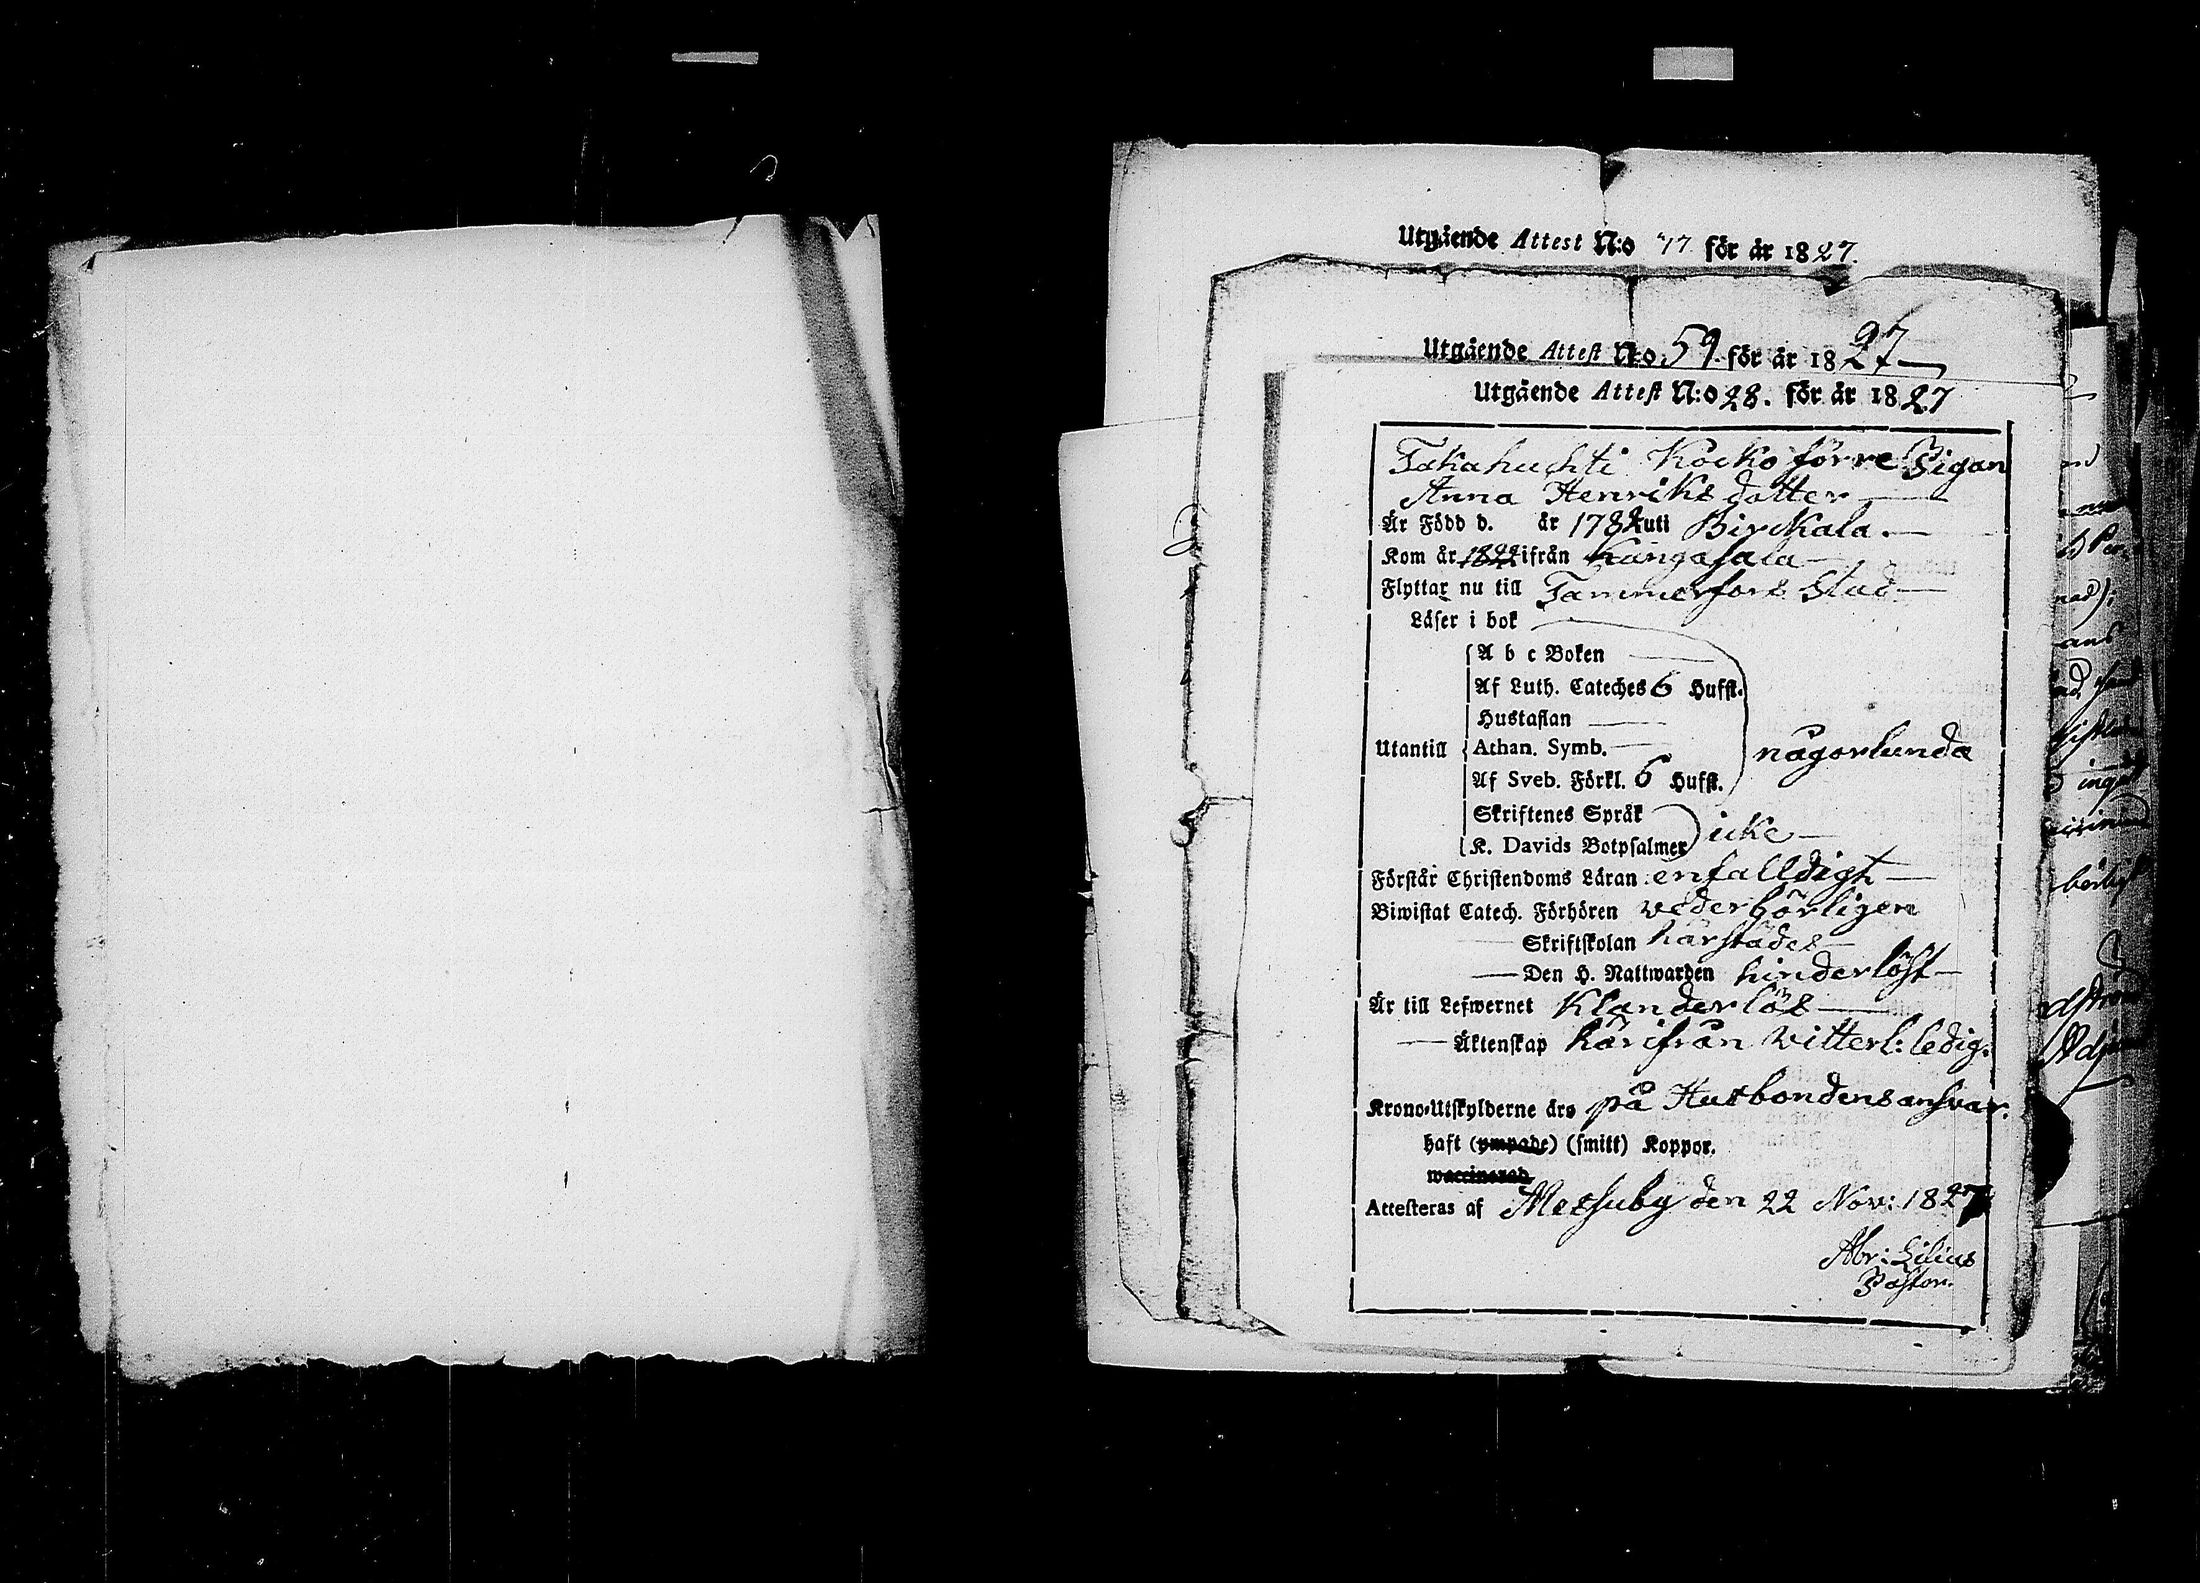 Utgående Attest N:o 77 för år 1827.
Utgående Attest N:o 59 för år 1827
Utgående Attest N:o 28. för år 1827
Takahuchti Kocko förre Pigan
Anna Henriksdotter
Är Född d. år 1782 uti Birckala.
Kom år 1822 ifrån Kangasala
Flyttar nu till Tammerfors Stad
Läser i bok
A b c Boken
Af Luth. Cateches 6 Hufst.
Hustaflan
Utantill Athan. Symb. någorlunda
Af Sveb. Förkl. 6 Hufst.
Skriftenes Språk
K. Davids Botpsalmer icke
Förstår Christendoms Läran enfalldigt
Biwistat Catech. Förhören vederbörligen
Skriftskolan härstädes
Den H. Nattwarden hinderlöst
Är till Lefwernet Klanderlös
Äktenskap härifrån vitterl: ledig.
Krono-Utskylderne äro på Husbondens ansvar.
haft (ympade) (smitt) Koppor.
waccinerad.
Attesteras af Messuby den 22 Nov: 1827
Abr: Lilius
Pastor.